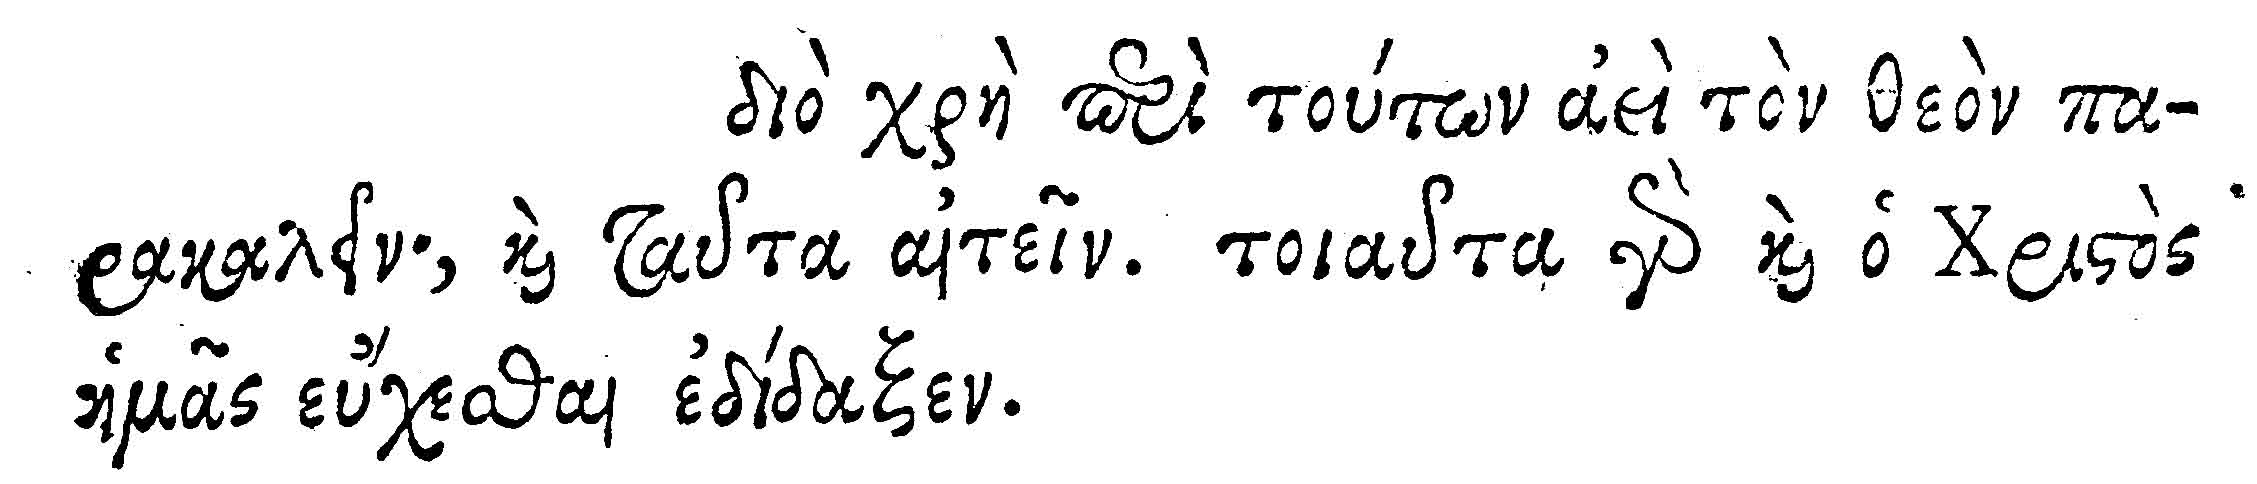 διὸ χρὴ περὶ τούτων ἀεὶ τὸν θεὸν πα-
ρακαλεῖν, καὶ ταῦτα αἰτεῖν. τοιαῦτα γὰρ καὶ ὁ Χριστὸς
ἡμᾶς εὔχεσθαι ἐδίδαξεν.